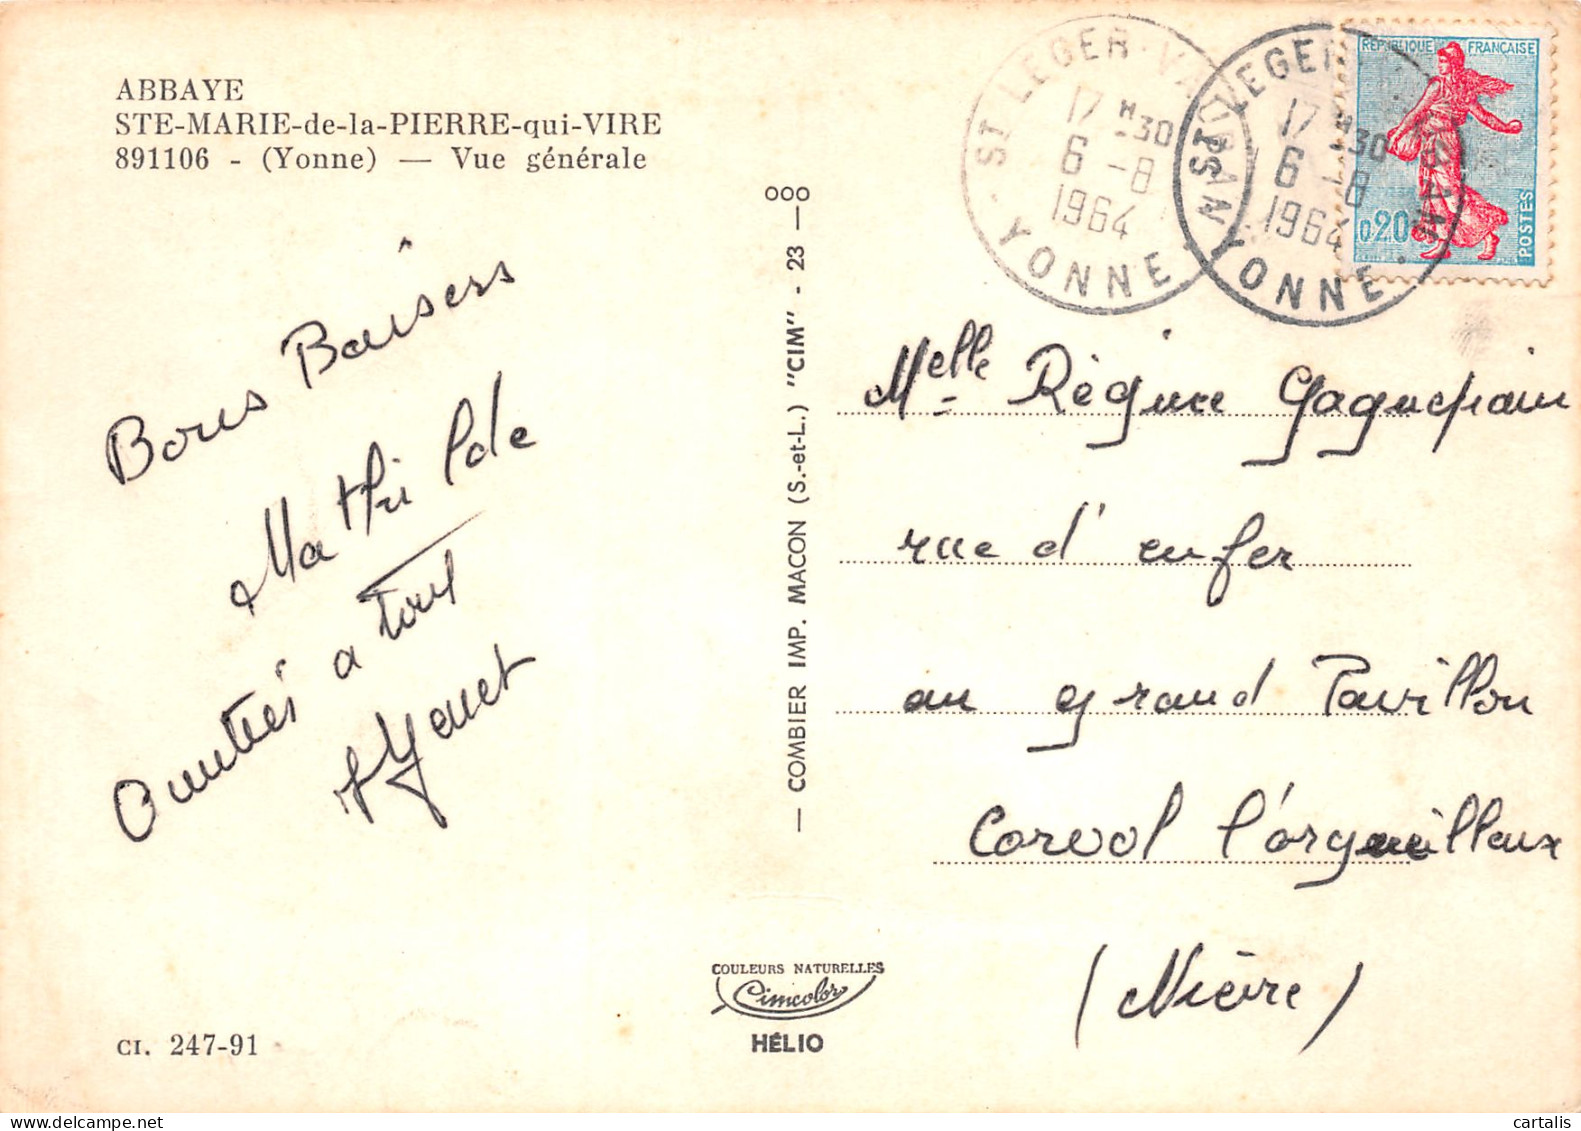 ABBAYE
STE-MARIE-de-la-PIERRE-qui-VIRE
891106 - (Yonne) — Vue générale
Bons Baisers
Mathilde
Amitiés a tous
Yanet
CI. 247-91
— COMBIER IMP. MACON (S.-et-L.) "CIM" - 23 —
COULEURS NATURELLES
Cimcolor
HÉLIO
ST LEGER-VAUBAN
17 H 30
6 -8
1964
YONNE
ST LEGER VAUBAN
17 H 30
6 -8
1964
YONNE
REPUBLIQUE FRANCAISE
0,20
POSTES
Melle Régine Gaguepain
rue d'enfer
au grand Pavillon
Corvol l'orgueilleux
(Nièvre)
cartalis